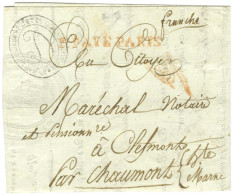 franche
P. PAYÉ PARIS
Au Citoyen
Maréchal Notaire
et Pensionné
à Clefmont
Par Chaumont hte
Marne